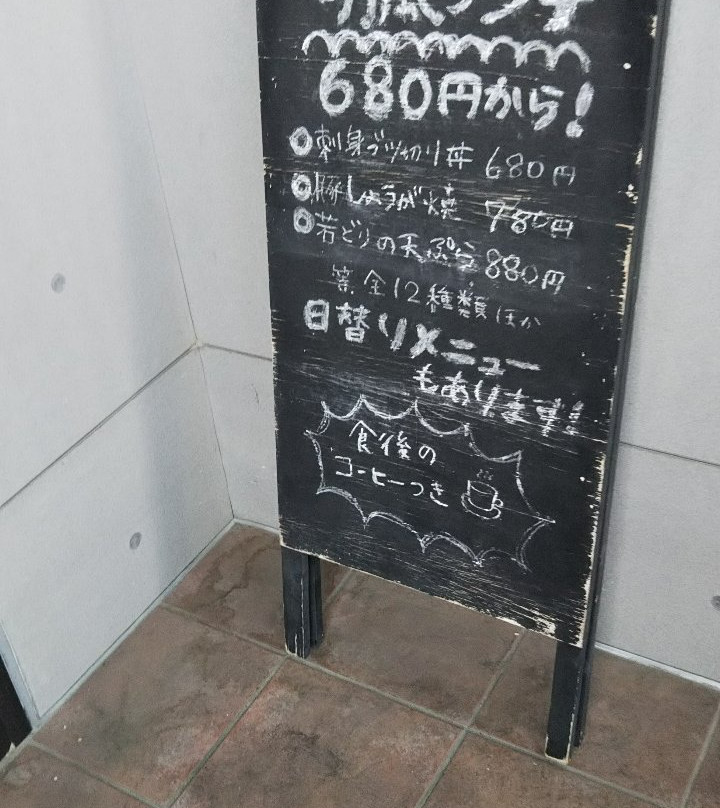 680円から!
◎刺身ブツ切り丼 680円
◎豚しょうが焼 780円
◎若どりの天ぷら 880円
等 全12種類ほか
日替りメニュー
もあります!!
食後の
コーヒーつき